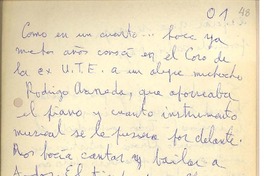 01 48
Como en un cuento... hace ya
muchos años conocí en el Coro de
la ex U.T.E. a un alegre muchacho
Rodrigo Araneda, que aforreaba
el piano y cuanto instrumento
musical se le pusiera por delante.
Nos hacía cantar y bailar a